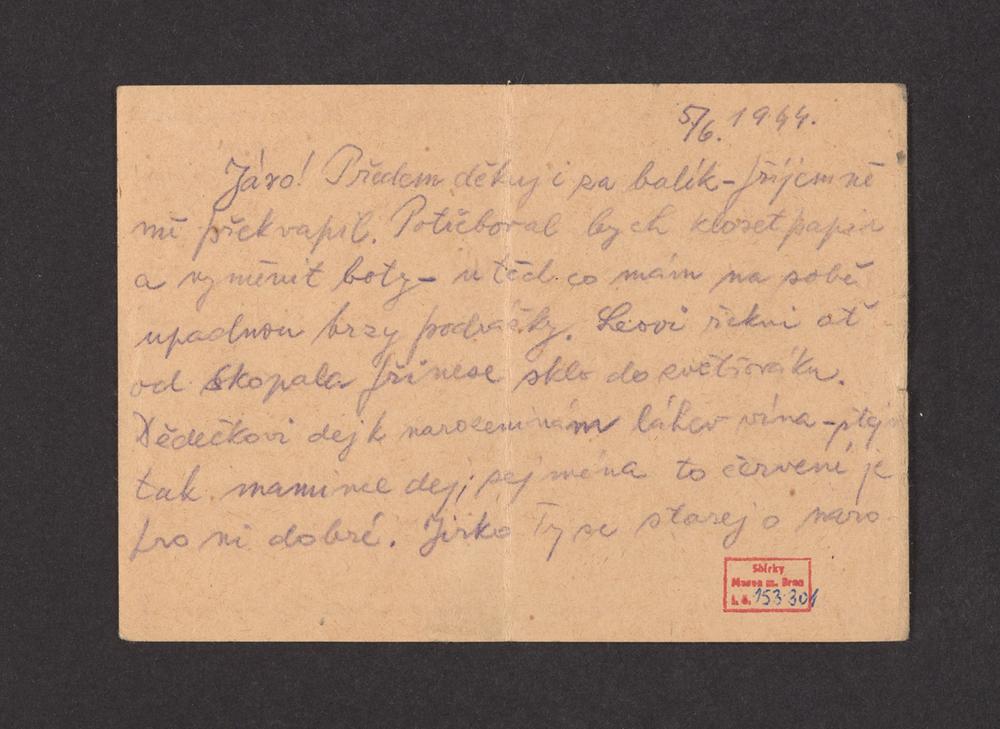 5/6. 1944.
Járo! Předem děkuji za balík - příjemně
mě překvapil. Potřeboval bych klosetpapír
a vyměnit boty - u těch co mám na sobě
upadnou brzy podrážky. Leovi řekni ať
od Skopala přinese sklo do zvětšováku.
Dědečkovi dej k narozeninám láhev vína - stej
tak mamince dej, zejména to červené je
pro ni dobré. Jirko Ty se starej o naro
Sbírky
Musea m. Brna
i. č. 153 301